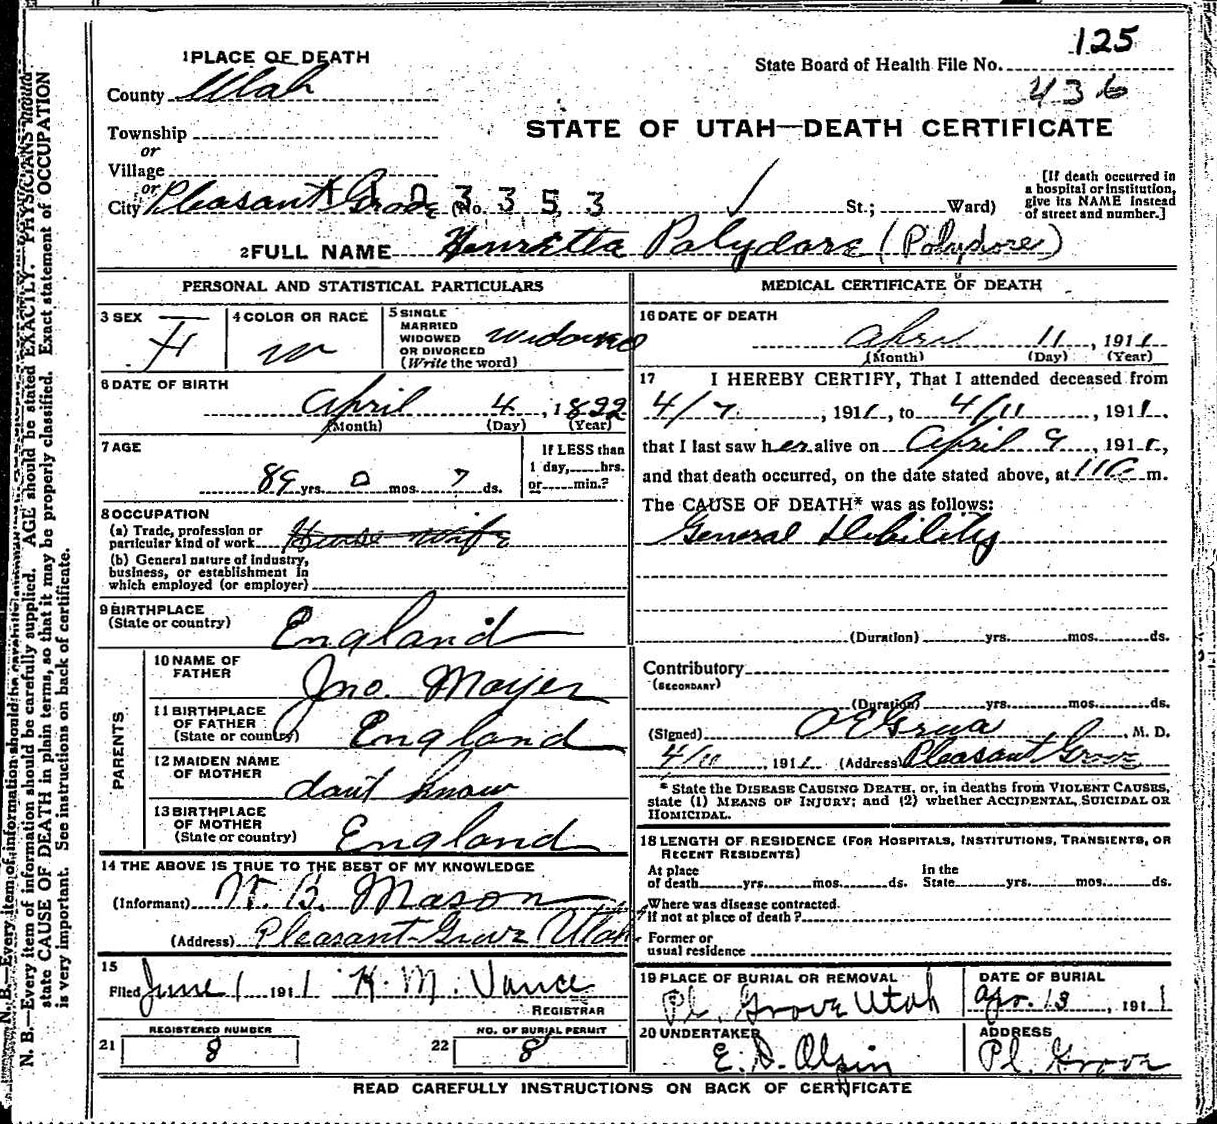 125
1 PLACE OF DEATH
State Board of Health File No.
County Utah
436
Township
STATE OF UTAH—DEATH CERTIFICATE
or
Village
or
City Pleasant Grove (No. 3353 St.; Ward)
[If death occurred in
a hospital or institution,
give its NAME instead
of street and number.]
2 FULL NAME Henrietta Polydore (Polydore)
PERSONAL AND STATISTICAL PARTICULARS
3 SEX F
4 COLOR OR RACE W
5 SINGLE
MARRIED
WIDOWED
OR DIVORCED
(Write the word)
Widowed
6 DATE OF BIRTH
April 4, 1822
(Month) (Day) (Year)
7 AGE
89 yrs. 0 mos. 7 ds.
If LESS than
1 day, hrs.
or min.?
8 OCCUPATION
(a) Trade, profession or
particular kind of work House wife
(b) General nature of industry,
business, or establishment in
which employed (or employer)
9 BIRTHPLACE
(State or country) England
PARENTS
10 NAME OF
FATHER Jno. Mayer
11 BIRTHPLACE
OF FATHER
(State or country) England
12 MAIDEN NAME
OF MOTHER dont know
13 BIRTHPLACE
OF MOTHER
(State or country) England
14 THE ABOVE IS TRUE TO THE BEST OF MY KNOWLEDGE
(Informant) W. B. Mason
(Address) Pleasant Grove Utah
15
Filed June 1 1911 K. M. Vance
REGISTRAR
REGISTERED NUMBER
21 8
NO. OF BURIAL PERMIT
22 8
MEDICAL CERTIFICATE OF DEATH
16 DATE OF DEATH
April 11, 1911
(Month) (Day) (Year)
17 I HEREBY CERTIFY, That I attended deceased from
4/7, 1911, to 4/11, 1911,
that I last saw her alive on April 9, 1911,
and that death occurred, on the date stated above, at m.
The CAUSE OF DEATH* was as follows:
General Debility
(Duration) yrs. mos. ds.
Contributory
(SECONDARY)
(Duration) yrs. mos. ds.
(Signed) O E Grua, M. D.
4/11, 1911 (Address) Pleasant Grove
* State the DISEASE CAUSING DEATH, or, in deaths from VIOLENT CAUSES,
state (1) MEANS OF INJURY; and (2) whether ACCIDENTAL, SUICIDAL OR
HOMICIDAL.
18 LENGTH OF RESIDENCE (FOR HOSPITALS, INSTITUTIONS, TRANSIENTS, OR
RECENT RESIDENTS)
At place
of death yrs. mos. ds.
In the
State yrs. mos. ds.
Where was disease contracted,
if not at place of death?
Former or
usual residence
19 PLACE OF BURIAL OR REMOVAL
Pl. Grove Utah
DATE OF BURIAL
Apr. 13, 1911
20 UNDERTAKER
E. D. Olpin
ADDRESS
Pl. Grove
READ CAREFULLY INSTRUCTIONS ON BACK OF CERTIFICATE
N. B.—Every item of information should be carefully supplied. AGE should be stated EXACTLY. PHYSICIANS should
state CAUSE OF DEATH in plain terms, so that it may be properly classified. Exact statement of OCCUPATION
is very important. See instructions on back of certificate.